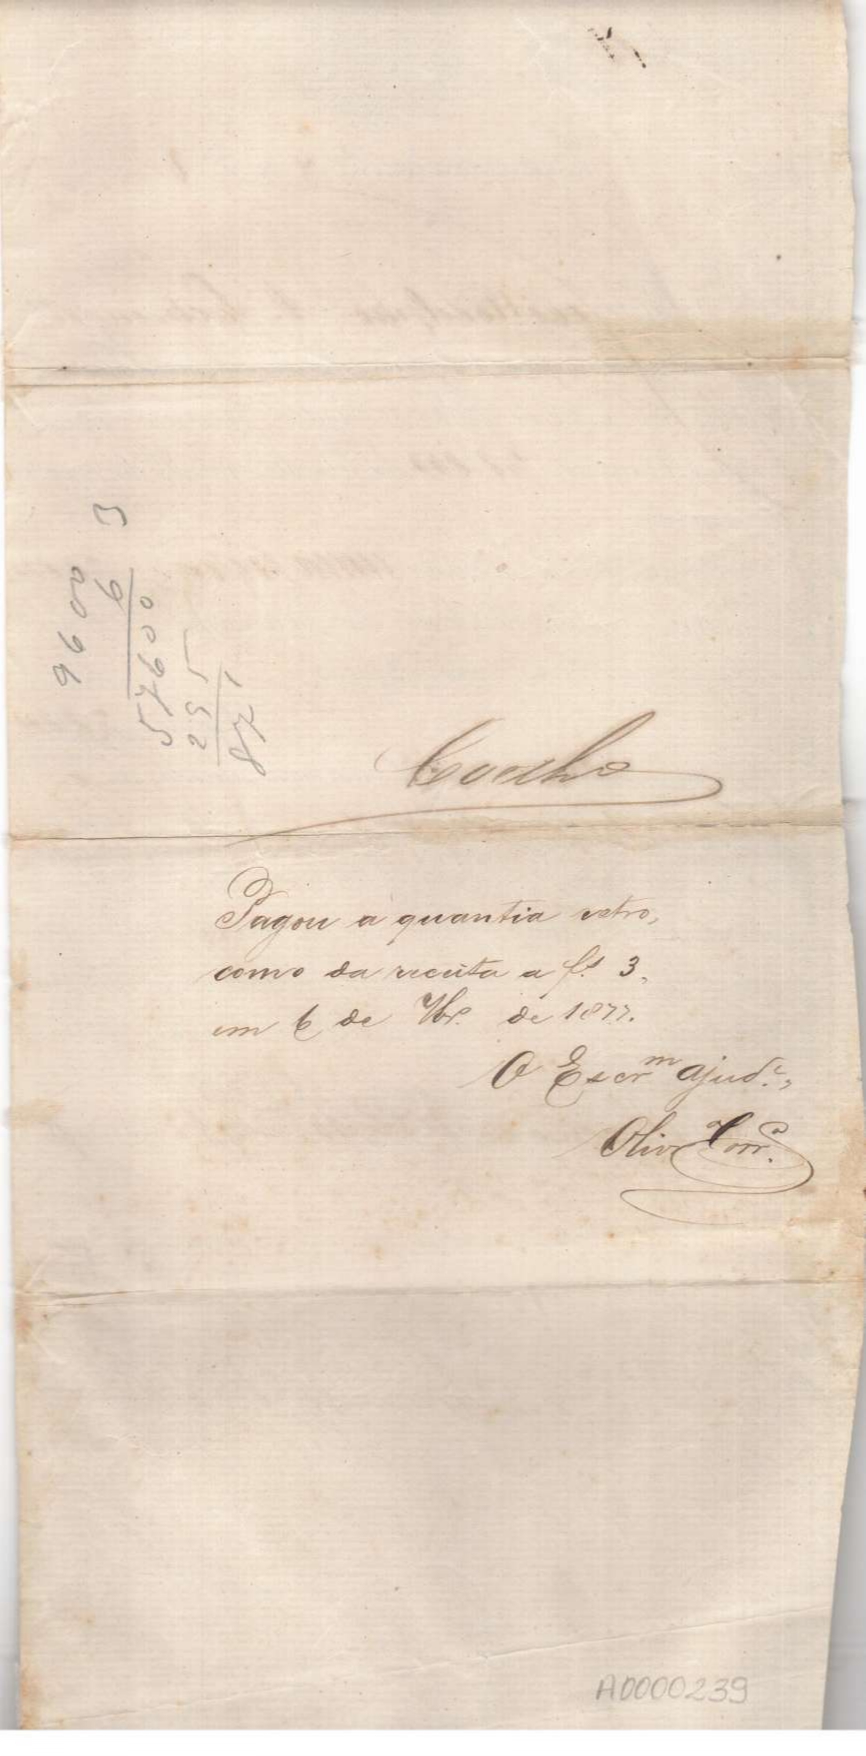 9600 3
6
57600
295
871
Coelho
Pagou a quantia retro,
como da receita a fs. 3,
em 6 de 7br.º de 1877.
O Escrm ajud.e,
Oliv.ª Corr.ª
A0000239